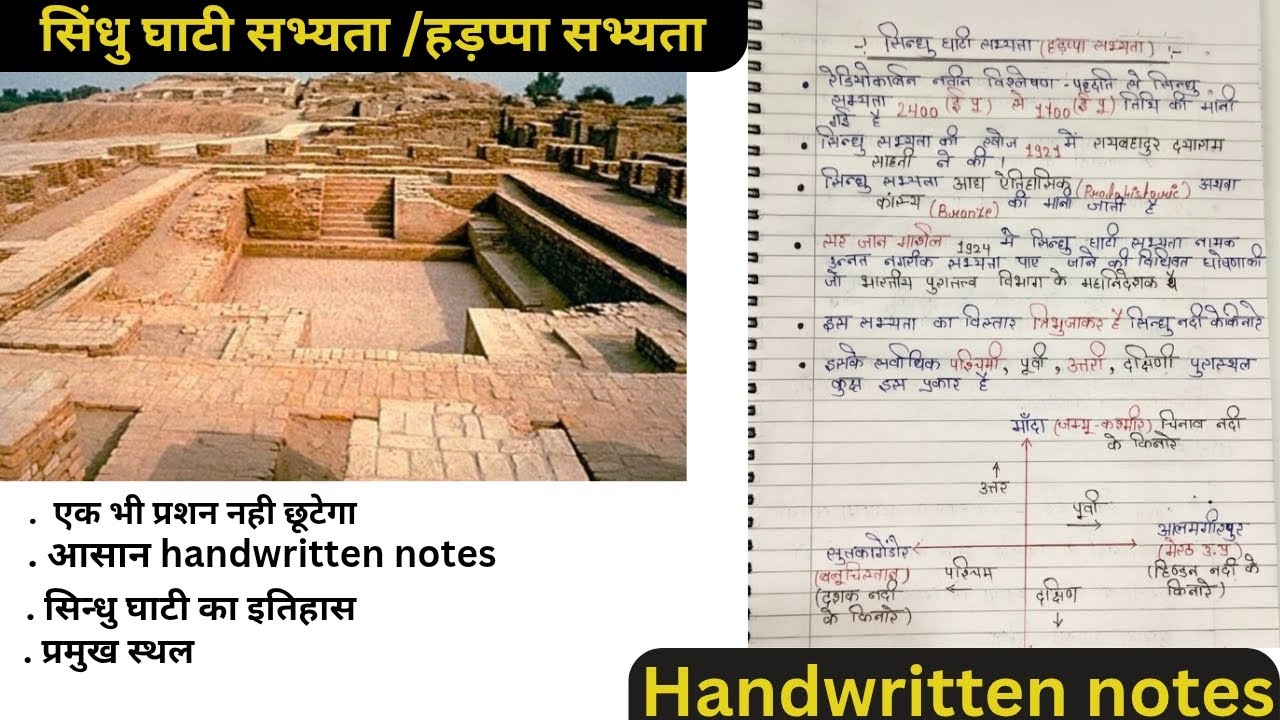 सिंधु घाटी सभ्यता /हड़प्पा सभ्यता
-: सिन्धु घाटी सभ्यता (हड़प्पा सभ्यता) :-
• रेडियोकार्बन नवीन विश्लेषण पद्दति से सिन्धु
सभ्यता 2400 (ई पू) से 1700 (ई पू) तिथि की मानी
गई है
• सिन्धु सभ्यता की खोज 1921 में रायबहादुर दयाराम
साहनी ने की।
• सिन्धु सभ्यता आद्य ऐतिहासिक अथवा
कास्य (Bronze) की मानी जाती है
• सर जान मार्शल 1924 में सिन्धु घाटी सभ्यता नामक
उन्नत नगरीक सभ्यता पाए जाने की विधिवत घोषणा की
जो भारतीय पुरातत्त्व विभाग के महानिदेशक थे
• इस सभ्यता का विस्तार त्रिभुजाकर है सिन्धु नदी के किनारे
• इसके सर्वाधिक पश्चिमी, पूर्वी, उत्तरी, दक्षिणी पुरास्थल
कुछ इस प्रकार है
माँदा (जम्मू-कश्मीर) चिनाव नदी
के किनारे
उत्तर
पूर्वी
आलमगीरपुर
(मेरठ उ.प्र)
(हिण्डन नदी के
किनारे)
सुतकागेंडोर
(बलूचिस्तान)
(दशक नदी
के किनारे)
पश्चिम
दक्षिण
. एक भी प्रशन नही छूटेगा
. आसान handwritten notes
. सिन्धु घाटी का इतिहास
. प्रमुख स्थल
Handwritten notes